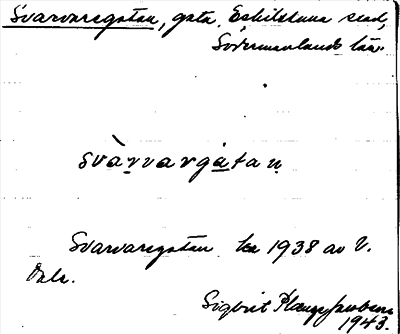 Svarvaregatan, gata, Eskilstuna stad,
Södermanlands län.
svàr̲vargá̲tan̲
Svarvaregatan ka 1938 av V.
Sigbrit Plænge Jacobson
1943.